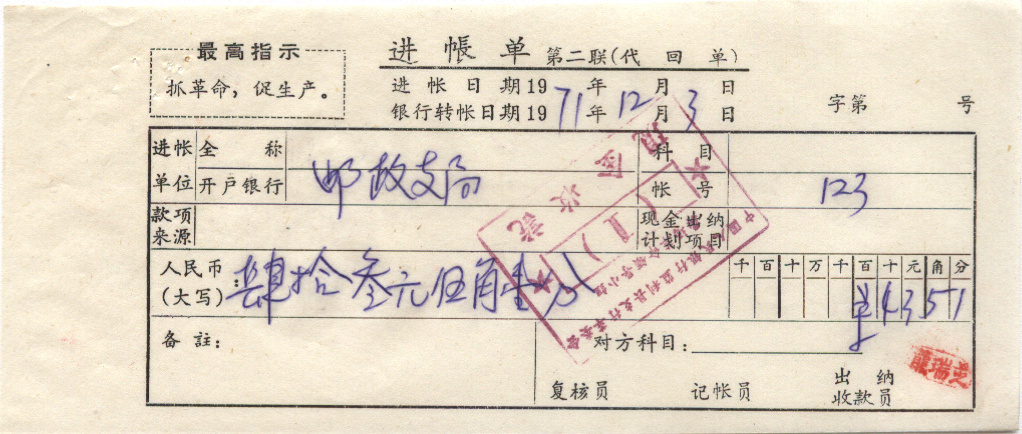 最高指示
抓革命，促生产。
进帳单 第二联(代回单)
进帐日期19 年 月 日
银行转帐日期1971年12月3日
字第 号
进帐单位 全称 科目
开户银行 邮政支局 帐号 123
款项来源 现金出纳计划项目
人民币(大写)：肆拾叁元伍角壹分
千百十万千百十元角分
¥4351
备註：
对方科目：
复核员 记帐员 出纳收款员
现金收讫
(1)